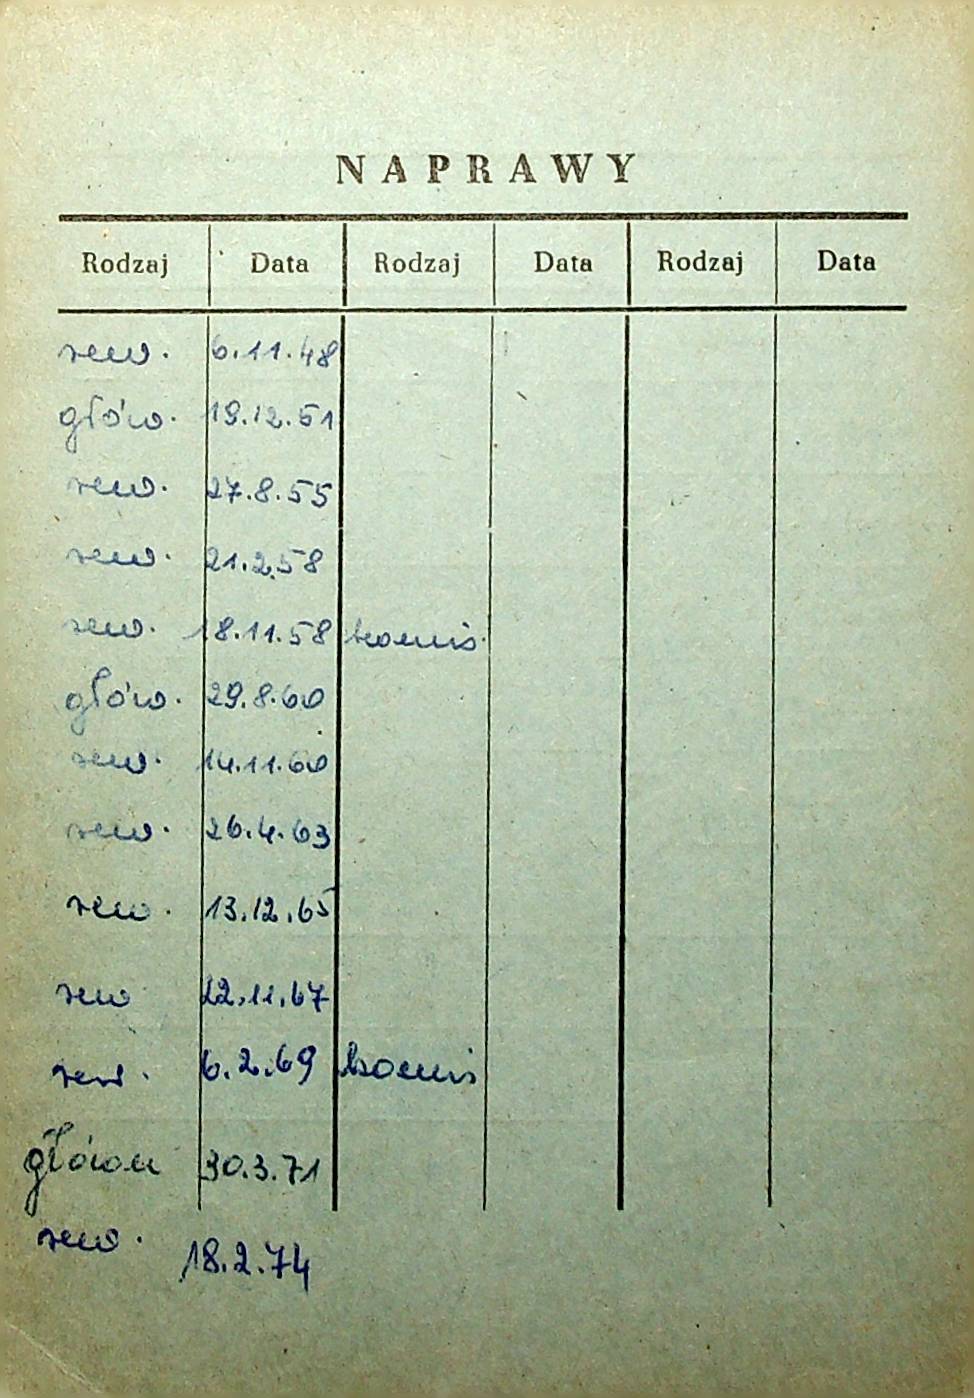 NAPRAWY
Rodzaj Data Rodzaj Data Rodzaj Data
rew. 6.11.48
głów. 19.12.51
rew. 27.8.55
rew. 21.2.58
rew. 18.11.58 komis.
głów. 29.8.60
rew. 14.11.60
rew. 26.4.63
rew. 13.12.65
rew 22.11.67
rew. 6.2.69 komis
główn 30.3.71
rew. 18.2.74